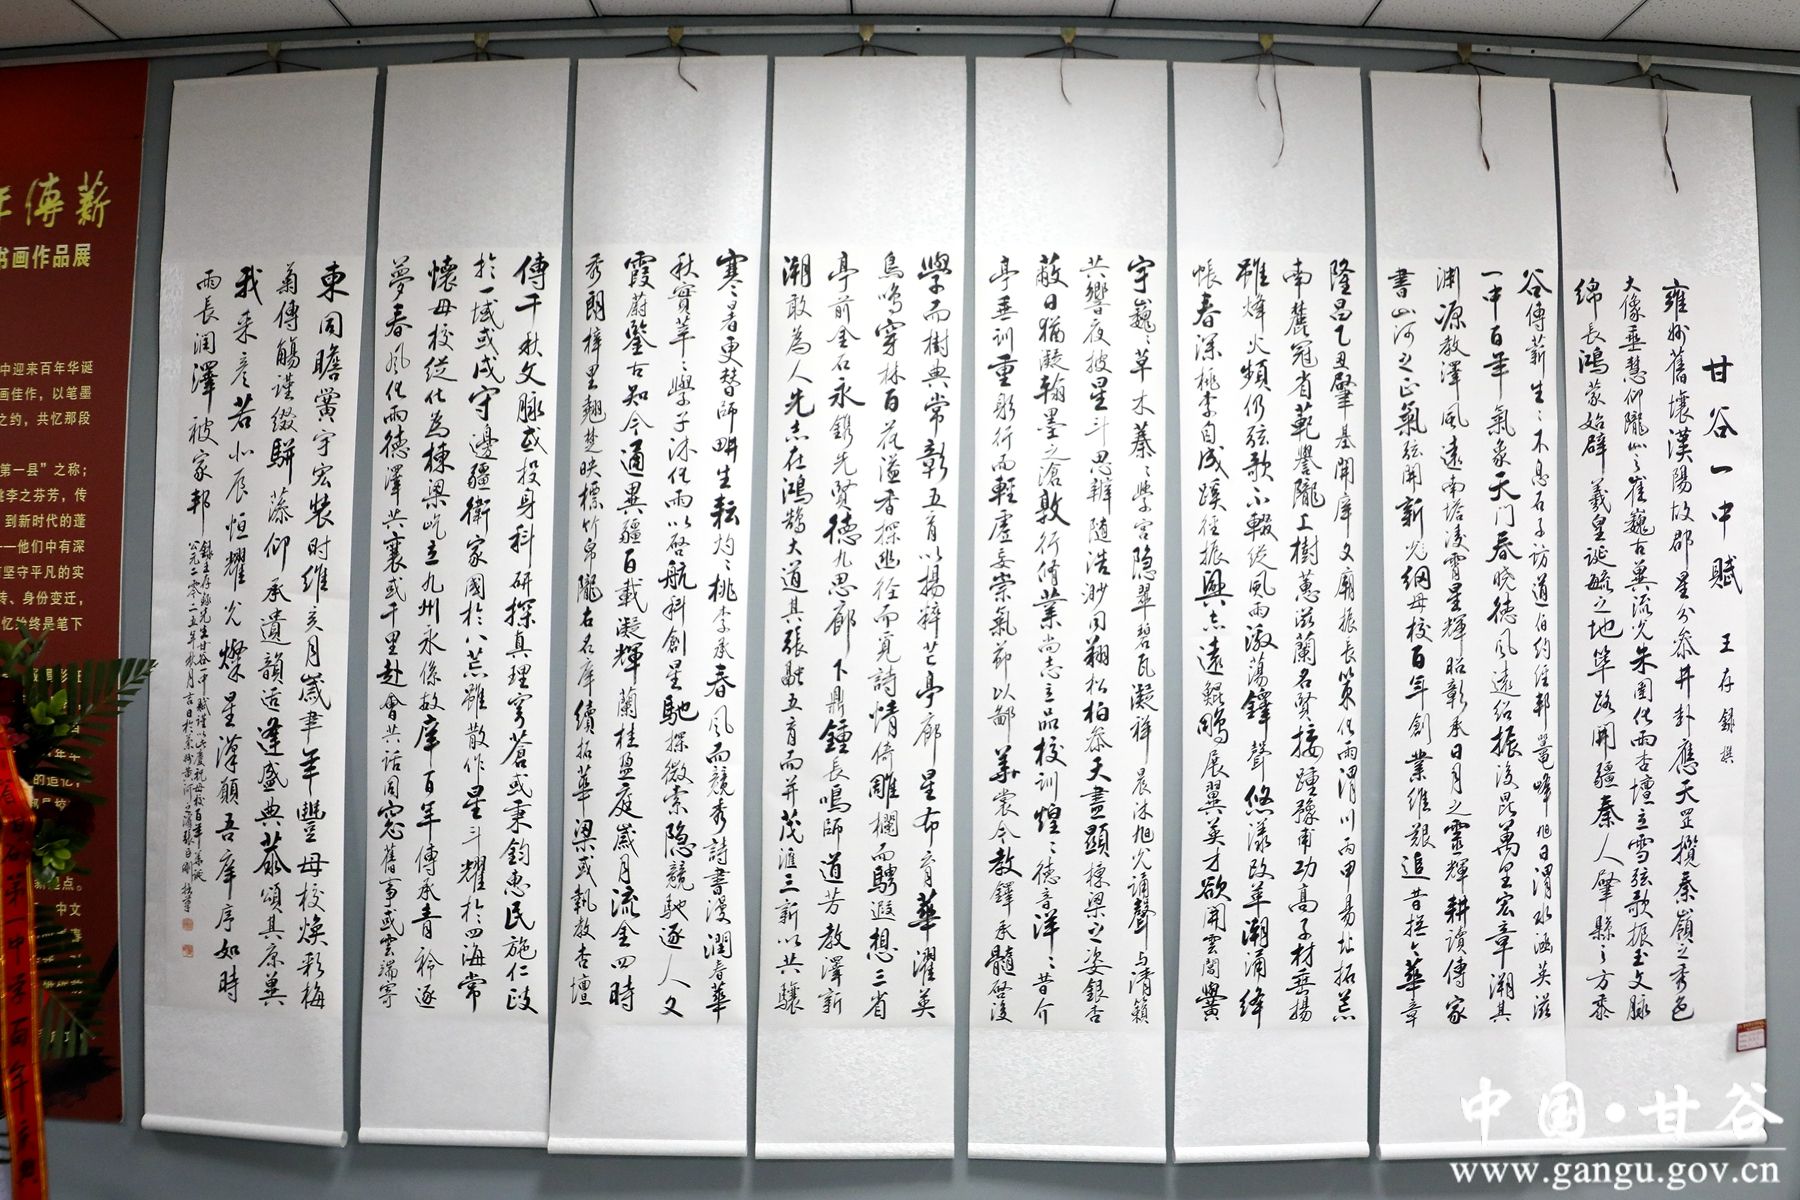 甘谷一中賦 王存錄撰
雍州舊壤漢陽故郡星分參井卦應天罡攬秦嶺之秀色
大像垂慧仰隴山之崔巍古冀流光朱圉化雨杏壇立雪弦歌振玉文脉
綿長鴻蒙始辟羲皇誕毓之地篳路開疆秦人肇縣之方黍
谷傳薪生生不息石子訪道伯約經邦鰲峰旭日渭水涵英滋
一中百年氣象天门春曉德風遠紹振後昆萬里宏章溯其
渊源教澤風遠南塔凌霄星輝昭彰承日月之靈輝耕讀傳家
書山河之正氣弦開新光緬母校百年創業維艱追昔撫今華章
隆昌乙丑肇基開庠文廟振長策化雨渭川丙甲易址拓荒
南麓冠省範譽隴上樹蕙滋蘭名賢接踵豫甫功高子材垂揚
雖烽火頻仍弦歌不輟縱風雨激蕩鐸聲悠漾改革潮涌绛
帳春深桃李自成蹊徑振興志遠鯤鵬展翼英才欲開雲閣黌
宇巍巍草木蓁蓁學宮隐翠碧瓦凝祥晨沐旭光誦聲与清籟
共響夜披星斗思辯随浩渺同翔松柏參天盡顯棟梁之姿銀杏
蔽日猶凝翰墨之滄敦行脩業尚志立品校訓煌煌德音洋洋昔介
亭垂訓重躬行而輕虛妄崇氣節以鄙華裳今教鐸承髓啓後
學而樹典常彰五育以揚粹芒亭廊星布育華濯英
鳥鳴穿林百花溢香探幽徑而覓詩情倚雕欄而騁遐想三省
亭前金石永鐫先賢德九思廊下鼎鍾長鳴師道芳教澤新
潮敢為人先志在鴻鵠大道其張融五育而并茂匯三新以共驤
寒暑更替師畊生耘灼灼桃李承春風而競秀詩書漫潤春華
秋實莘莘學子沐化雨以啓航科創星馳探微索隐競馳逐人文
霞蔚鑒古知今通異疆百載凝輝蘭桂盈庭歲月流金四時
秀朗梓里翹楚映標竹帛隴右名庠續拓華梁或執教杏壇
傳千秋文脉或投身科研探真理穹蒼或秉鈞惠民施仁政
於一域或戍守邊疆衛家國於八荒雖散作星斗耀於四海常
懷母校從化為棟梁屹立九州永係故庠百年傳承青衿逐
夢春風化雨德澤共襄或千里赴會共話同窓舊事或雲端寄
東同瞻黉宇宏裝时維亥月歲聿年豐母校煥彩梅
菊傳觴謹綴駢藻仰承遺韻适逢盛典恭頌其原冀
我来彥若北辰恒耀光燦星漢願吾庠序如時
雨長润澤被家邦
錄王存錄先生甘谷一中賦謹以此慶祝母校百年華诞
公元二零二五年秋月
年傳薪
书画作品展
中迎来百年华诞
画佳作，以笔墨
之约，共忆那段
第一县”之称；
桃李之芬芳，传
到新时代的蓬
——他们中有深
坚守平凡的实
转、身份变迁，
忆始终是笔下
谷第一中学百年
中国·甘谷
www.gangu.gov.cn